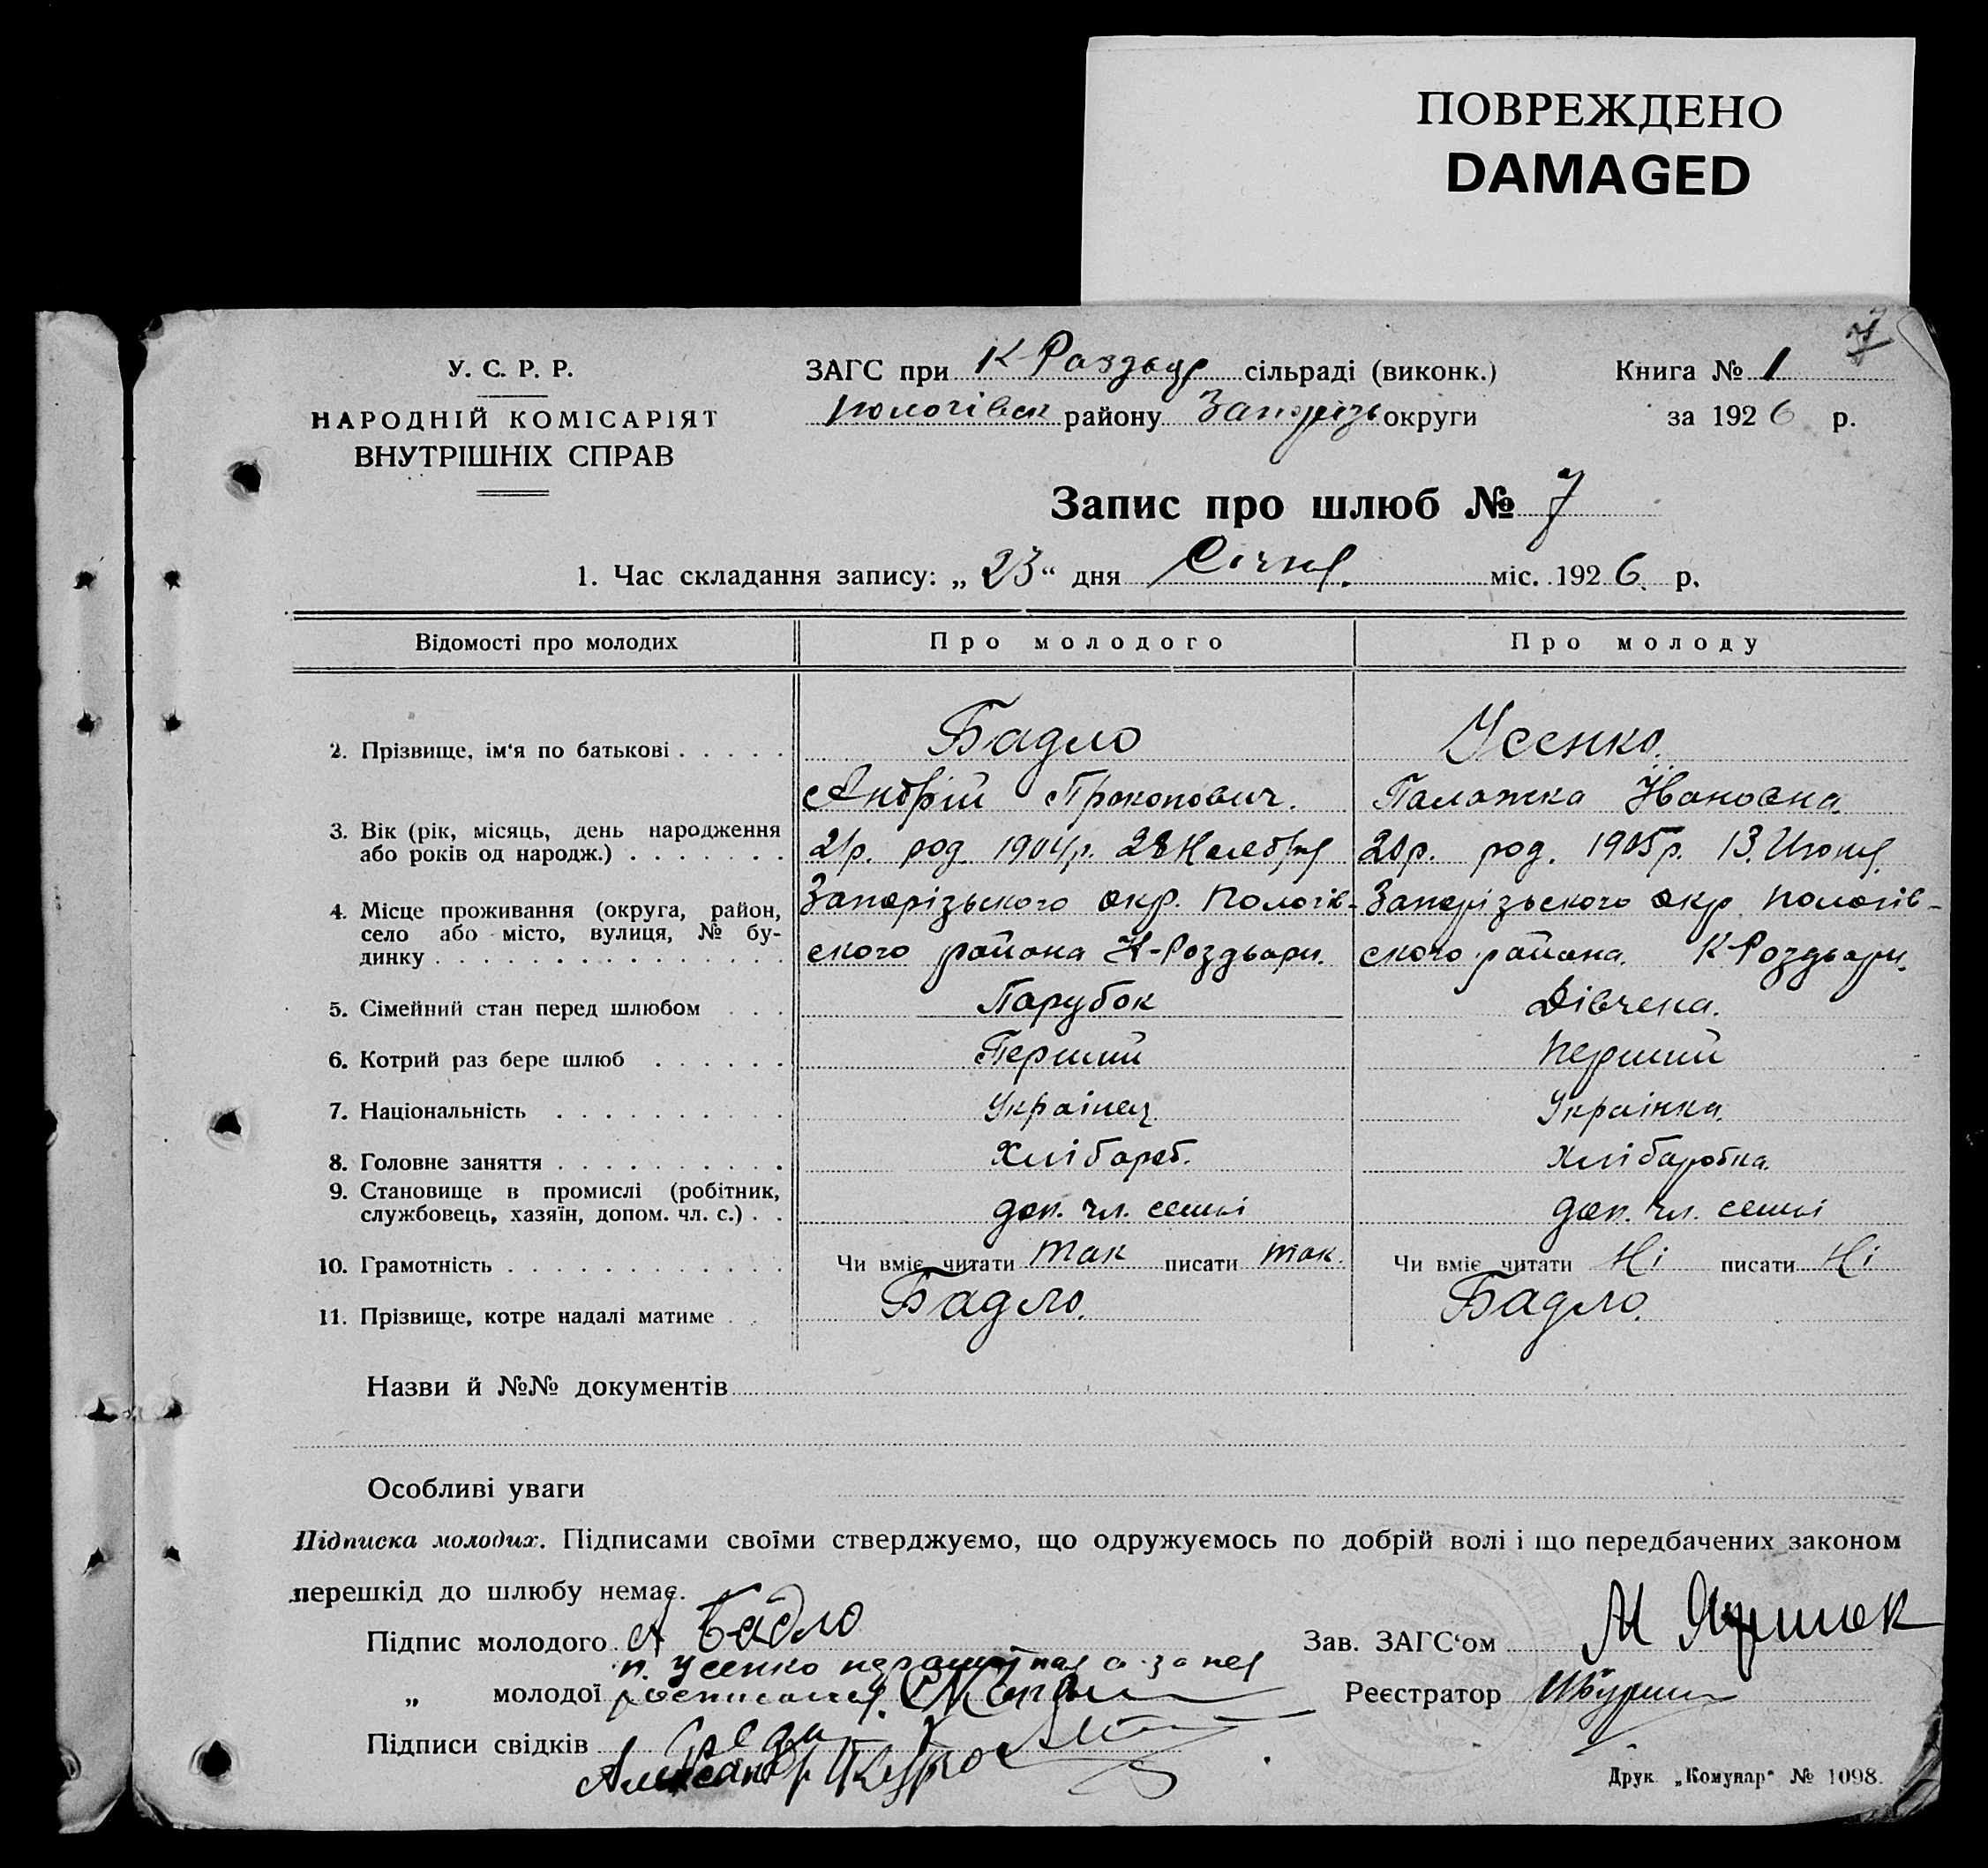 ПОВРЕЖДЕНО
DAMAGED
7
У. С. Р. Р.
НАРОДНІЙ КОМІСАРІЯТ
ВНУТРІШНІХ СПРАВ
ЗАГС при К-Роздор сільраді (виконк.)
Пологівск району Запорізь округи
Книга № 1
за 1926 р.
Запис про шлюб № 7
1. Час складання запису: „23“ дня Січня. міс. 1926. р.
Відомості про молодих
Про молодого
Про молоду
2. Прізвище, ім‘я по батькові
Бадло
Андрій Прокопович.
Усенко.
Палажка Йвановна
3. Вік (рік, місяць, день народження
або років од народж.)
21р. род. 1904р. 28
20р. род. 1905р. 13. Июня.
4. Місце проживання (округа, район,
село або місто, вулиця, № бу-
динку
Запорізьского окр. Пологів-
ского района К-Роздьори.
Запорізьского окр. Пологів-
ского района. К-Роздьори.
5. Сімейний стан перед шлюбом
Парубок
Дівчена.
6. Котрий раз бере шлюб
Перший
Перший
7. Національність
Українец
Українка.
8. Головне заняття
Хлібароб.
Хлібаробка.
9. Становище в промислі (робітник,
службовець, хазяїн, допом. чл. с.)
доп. чл. семьі
доп. чл. семьі
10. Грамотність
Чи вміє читати так писати так.
Чи вміє читати Ні писати Ні
11. Прізвище, котре надалі матиме
Бадло.
Бадло.
Назви й №№ документів
Особливі уваги
Підписка молодих. Підписами своїми стверджуємо, що одружуємось по добрій волі і що передбачених законом
перешкід до шлюбу немає.
Підпис молодого А Бадло
Зав. ЗАГС‘ом М
п. Усенко а за нея
„ молодої росписался.
Реєстратор
Підписи свідків
Александр
Друк. „Комунар“ № 1098.